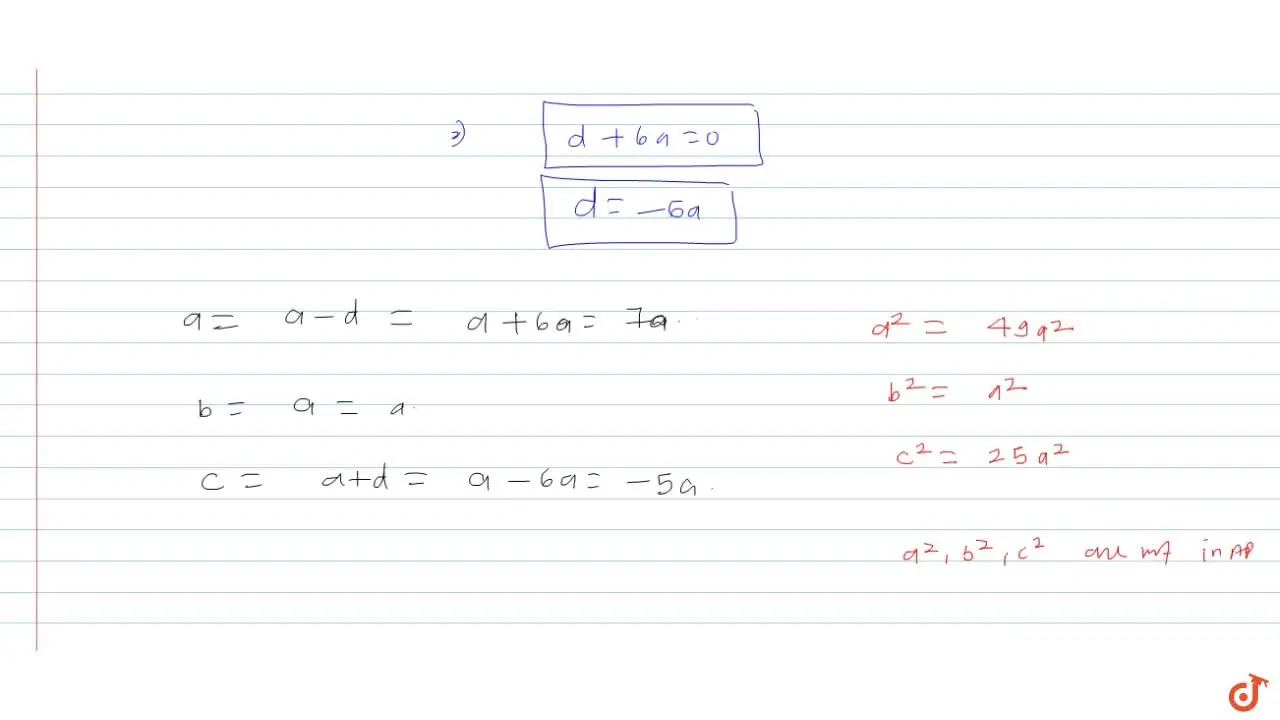 ⇒) d + 6a = 0
d = -6a
a = a - d = a + 6a = 7a
b = a = a.
c = a+d = a - 6a = -5a.
a² = 49a²
b² = a²
c² = 25a²
a², b², c² are not in AP